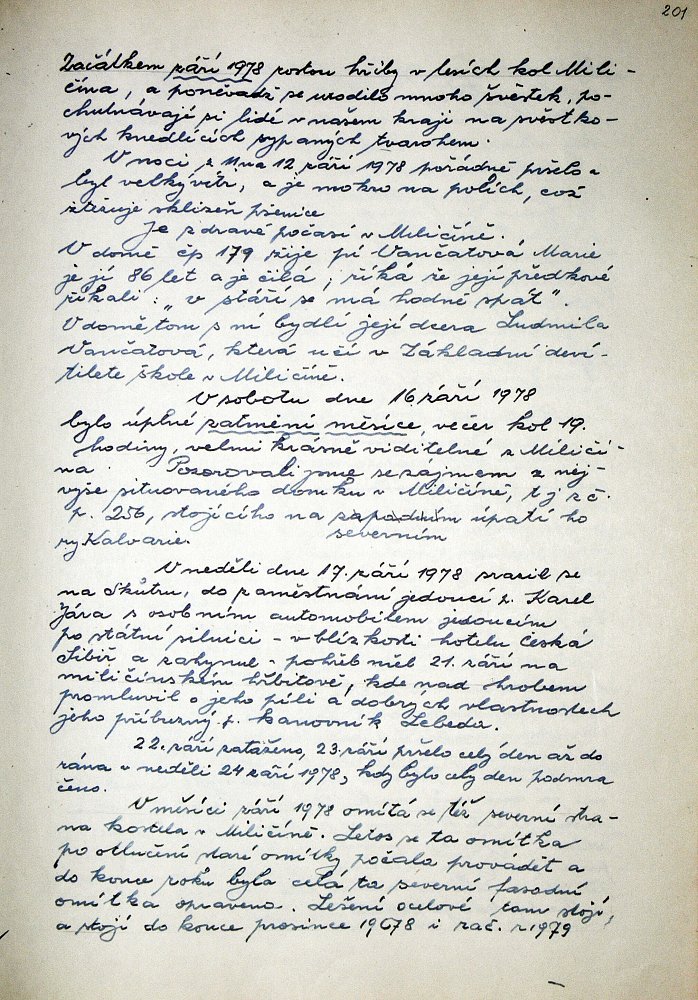 201
Začátkem září 1978 rostou hřiby v lesích kol Mili-
čína, a poněvadž se urodilo mnoho švestek, po-
chutnávají si lidé v našem kraji na svěstko-
vých knedlících sypaných tvarohem.
V noci z 11 na 12 září 1978 pořádně pršelo a
byl velký vítr, a je mokro na polích, což
ztěžuje sklizeň pšenice
Je zdravé počasí v Miličíně.
V domě čp 179 žije pí Vančatová Marie
je jí 86 let a je čilá, říká že její předkové
říkali: „v stáří se má hodně spát".
V domě tom s ní bydlí její dcera Ludmila
Vančatová, která učí v Základní deví-
tileté škole v Miličíně.
V sobotu dne 16. září 1978
bylo úplné zatmění měsíce, večer kol 19.
hodiny, velmi krásně viditelné z Miličí-
na Pozorovali jsme se zájmem z nej-
výše situovaného domku v Miličíně, t j z č.
p. 256, stojícího na západním úpatí ho
severním
ry Kalvarie.
V neděli dne 17. září 1978 srazil se
na skútru, do zaměstnání jedoucí p. Karel
Jára s osobním automobilem jedoucím
po státní silnici - v blízkosti hotelu česká
Sibiř a zahynul - pohřeb měl 21. září na
miličínském hřbitově, kde nad hrobem
promluvil o jeho píli a dobrých vlastnostech
jeho příbuzný p. kanovník Lebeda.
22. září zataženo, 23. září pršelo celý den až do
rána v neděli 24 září 1978, kdy bylo celý den podmra
čeno.
V měsíci září 1978 omítá se též severní stra-
na kostela v Miličíně. Letos se ta omítka
po otlučení staré omítky počala provádět a
do konce roku byla celá ta severní fasádní
omítka spravena. Lešení ocelové tam stojí,
a stojí do konce prosince 19678 i zač. r 1979